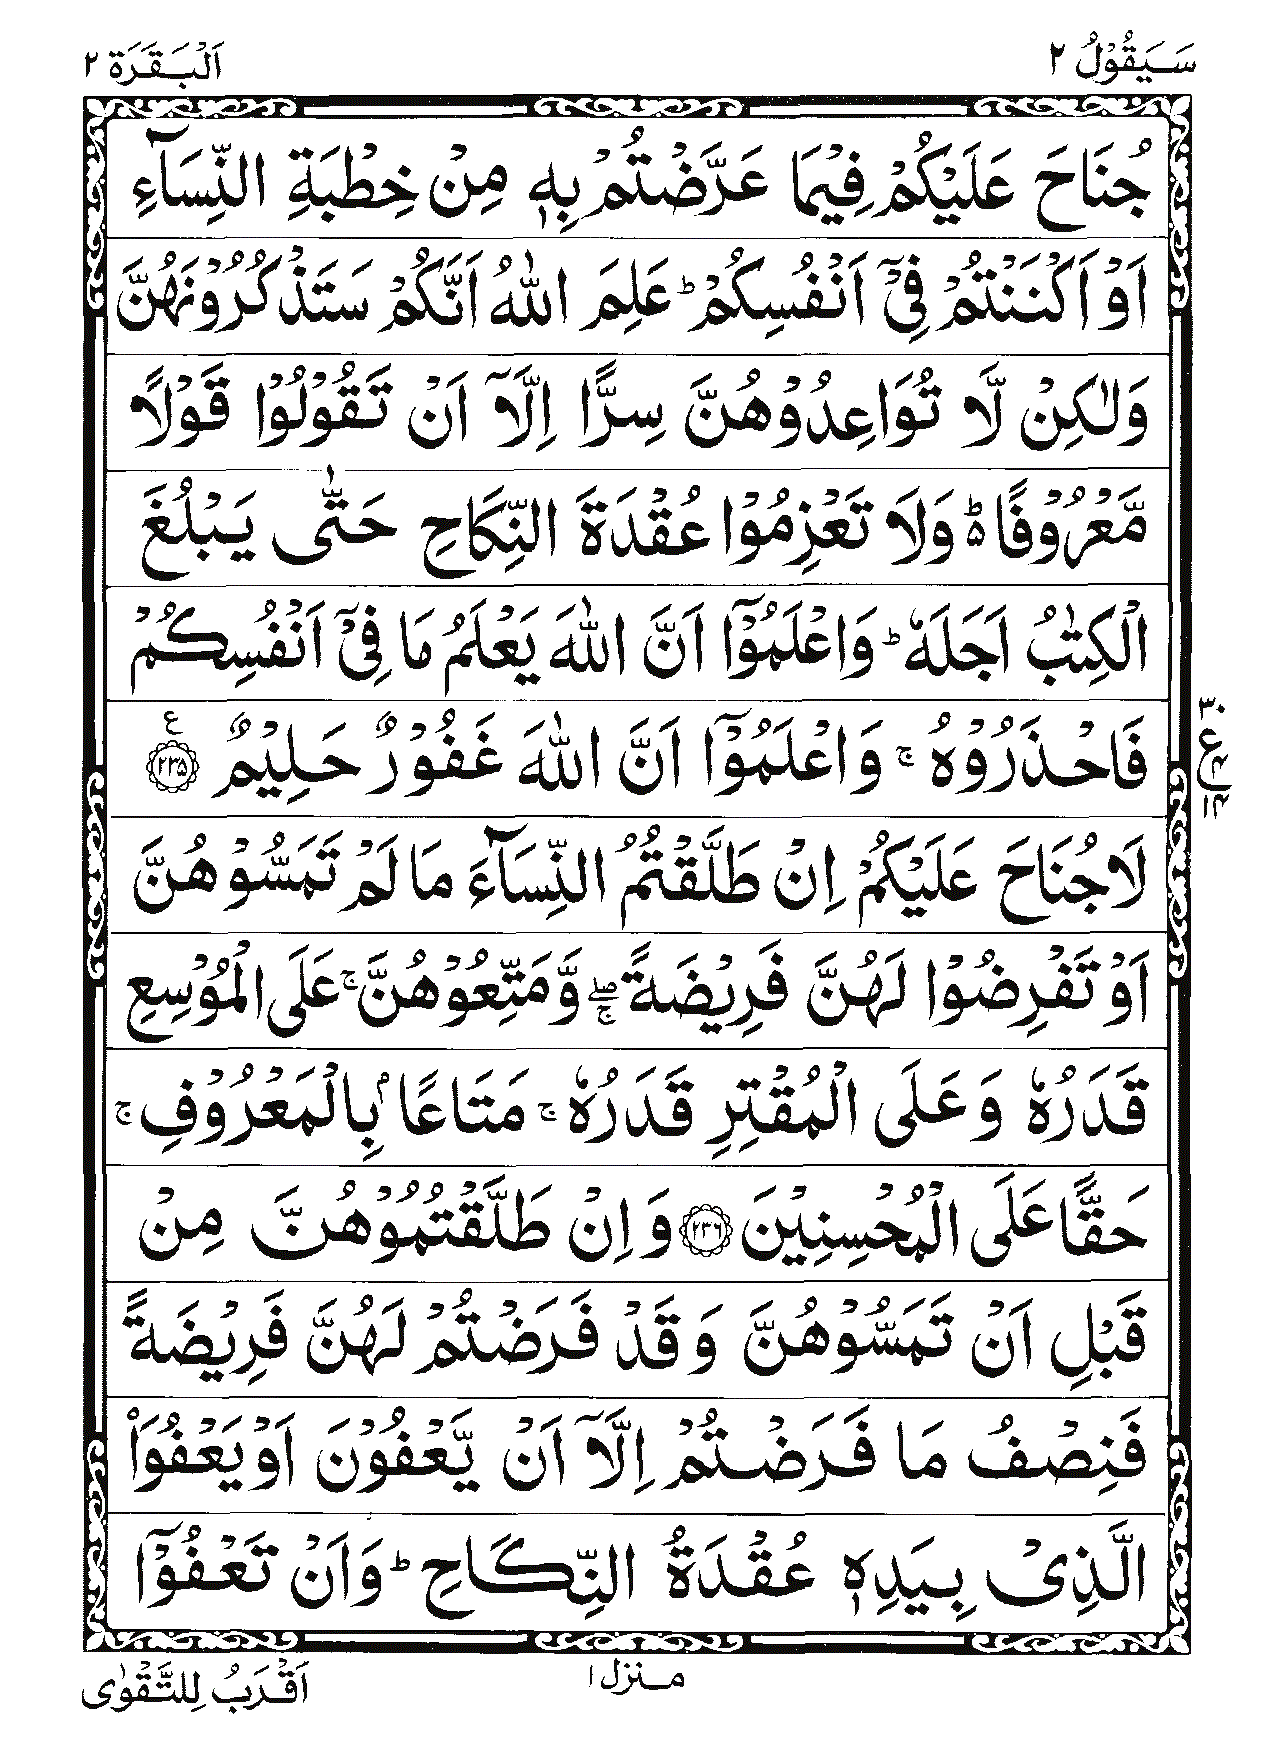 سَيَقُوْلُ ٢
اَلْبَقَرَة ٢
جُنَاحَ عَلَيْكُمْ فِيْمَا عَرَّضْتُمْ بِهٖ مِنْ خِطْبَةِ النِّسَآءِ
اَوْ اَكْنَنْتُمْ فِيْٓ اَنْفُسِكُمْ ؕ عَلِمَ اللّٰهُ اَنَّكُمْ سَتَذْكُرُوْنَهُنَّ
وَلٰكِنْ لَّا تُوَاعِدُوْهُنَّ سِرًّا اِلَّآ اَنْ تَقُوْلُوْا قَوْلًا
مَّعْرُوْفًا ؕ۬ وَلَا تَعْزِمُوْا عُقْدَةَ النِّكَاحِ حَتّٰى يَبْلُغَ
الْكِتٰبُ اَجَلَهٗ ؕ وَاعْلَمُوْٓا اَنَّ اللّٰهَ يَعْلَمُ مَا فِيْٓ اَنْفُسِكُمْ
فَاحْذَرُوْهُ ۚ وَاعْلَمُوْٓا اَنَّ اللّٰهَ غَفُوْرٌ حَلِيْمٌ ﴿٢٣٥﴾ ع
٣٠ ع ١٤
لَا جُنَاحَ عَلَيْكُمْ اِنْ طَلَّقْتُمُ النِّسَآءَ مَا لَمْ تَمَسُّوْهُنَّ
اَوْ تَفْرِضُوْا لَهُنَّ فَرِيْضَةً ۖۚ وَّمَتِّعُوْهُنَّ ۚ عَلَى الْمُوْسِعِ
قَدَرُهٗ وَعَلَى الْمُقْتِرِ قَدَرُهٗ ۚ مَتَاعًاۢ بِالْمَعْرُوْفِ ۚ
حَقًّا عَلَى الْمُحْسِنِيْنَ ﴿٢٣٦﴾ وَاِنْ طَلَّقْتُمُوْهُنَّ مِنْ
قَبْلِ اَنْ تَمَسُّوْهُنَّ وَقَدْ فَرَضْتُمْ لَهُنَّ فَرِيْضَةً
فَنِصْفُ مَا فَرَضْتُمْ اِلَّآ اَنْ يَّعْفُوْنَ اَوْ يَعْفُوَا۟
الَّذِيْ بِيَدِهٖ عُقْدَةُ النِّكَاحِ ؕ وَاَنْ تَعْفُوْٓا
منزل ١
اَقْرَبُ لِلتَّقْوٰى